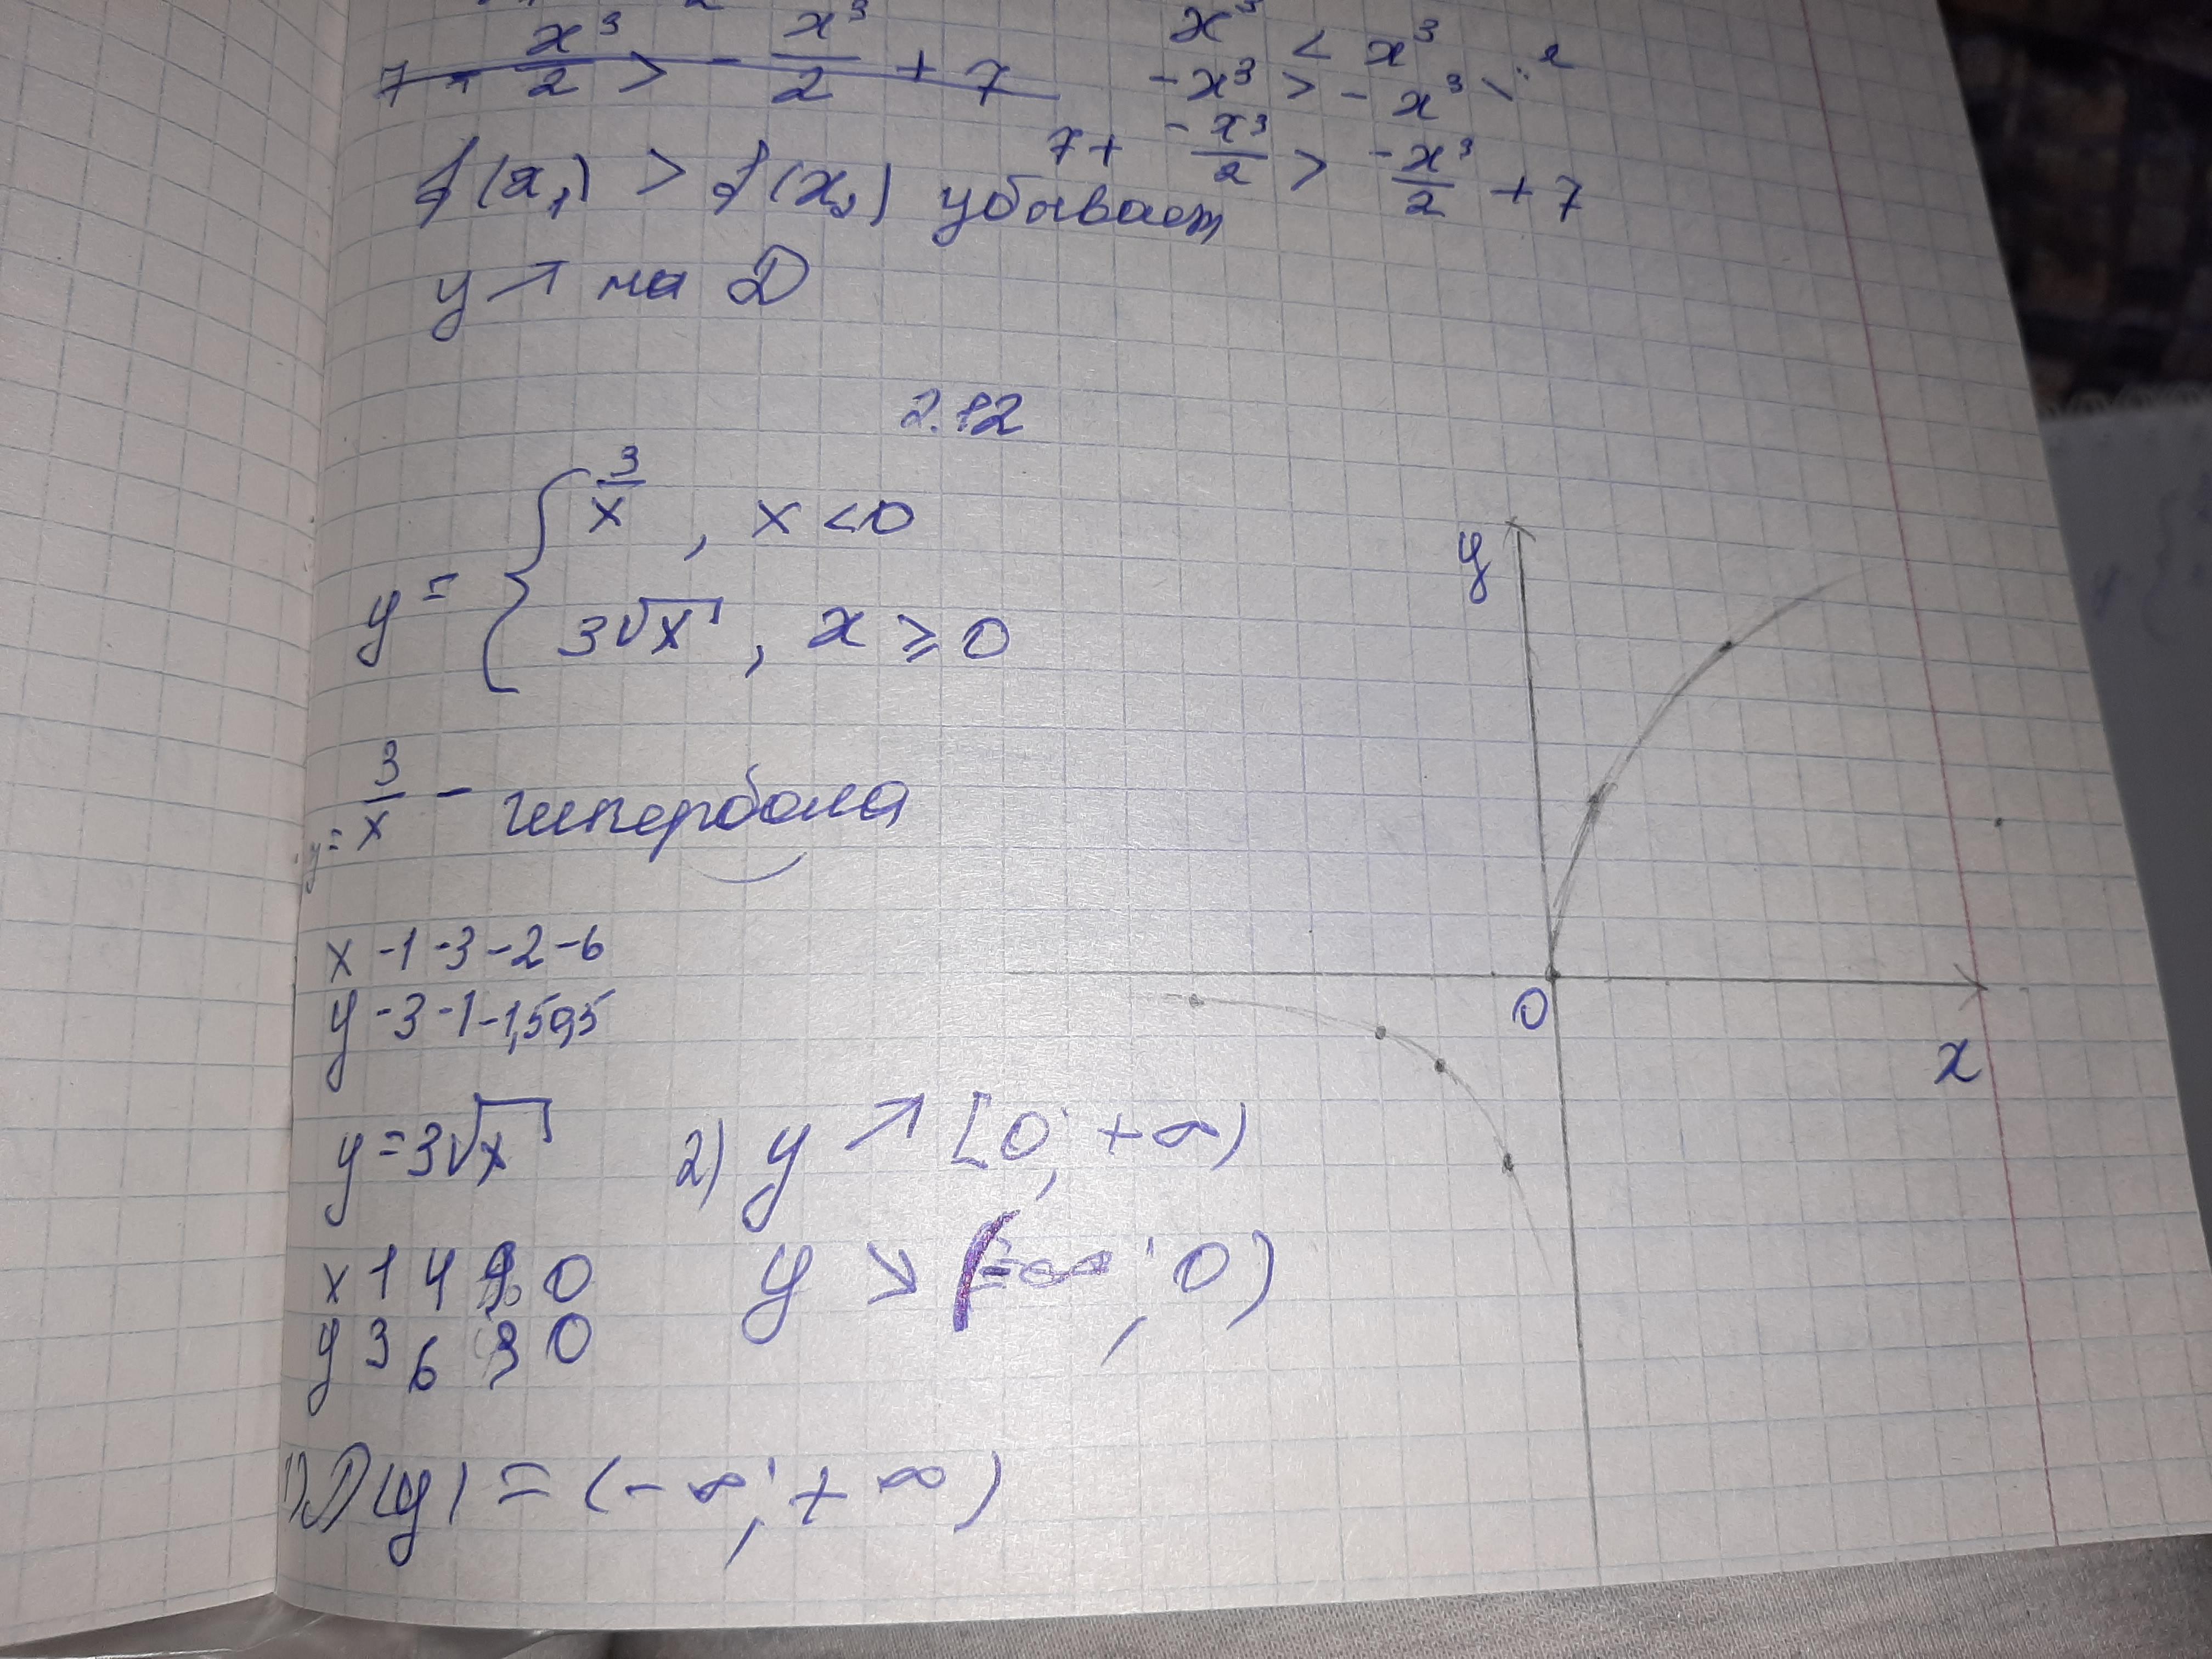 7 - x³/2 > - x³/2 + 7
x³ < x³
-x³ > - x³ \ :2
7 + -x³/2 > -x³/2 + 7
f(x₁) > f(x₂) убывает
y ↗ на D
2.12
y = { 3/x , x < 0
3√x , x ≥ 0
y
0
x
y = 3/x - гипербола
x -1 -3 -2 -6
y -3 -1 -1,5 0,5
y = 3√x
x 1 4 9 0
y 3 6 9 0
2) y ↗ [0; +∞)
y ↘ (-∞; 0)
1) D(y) = (-∞; +∞)